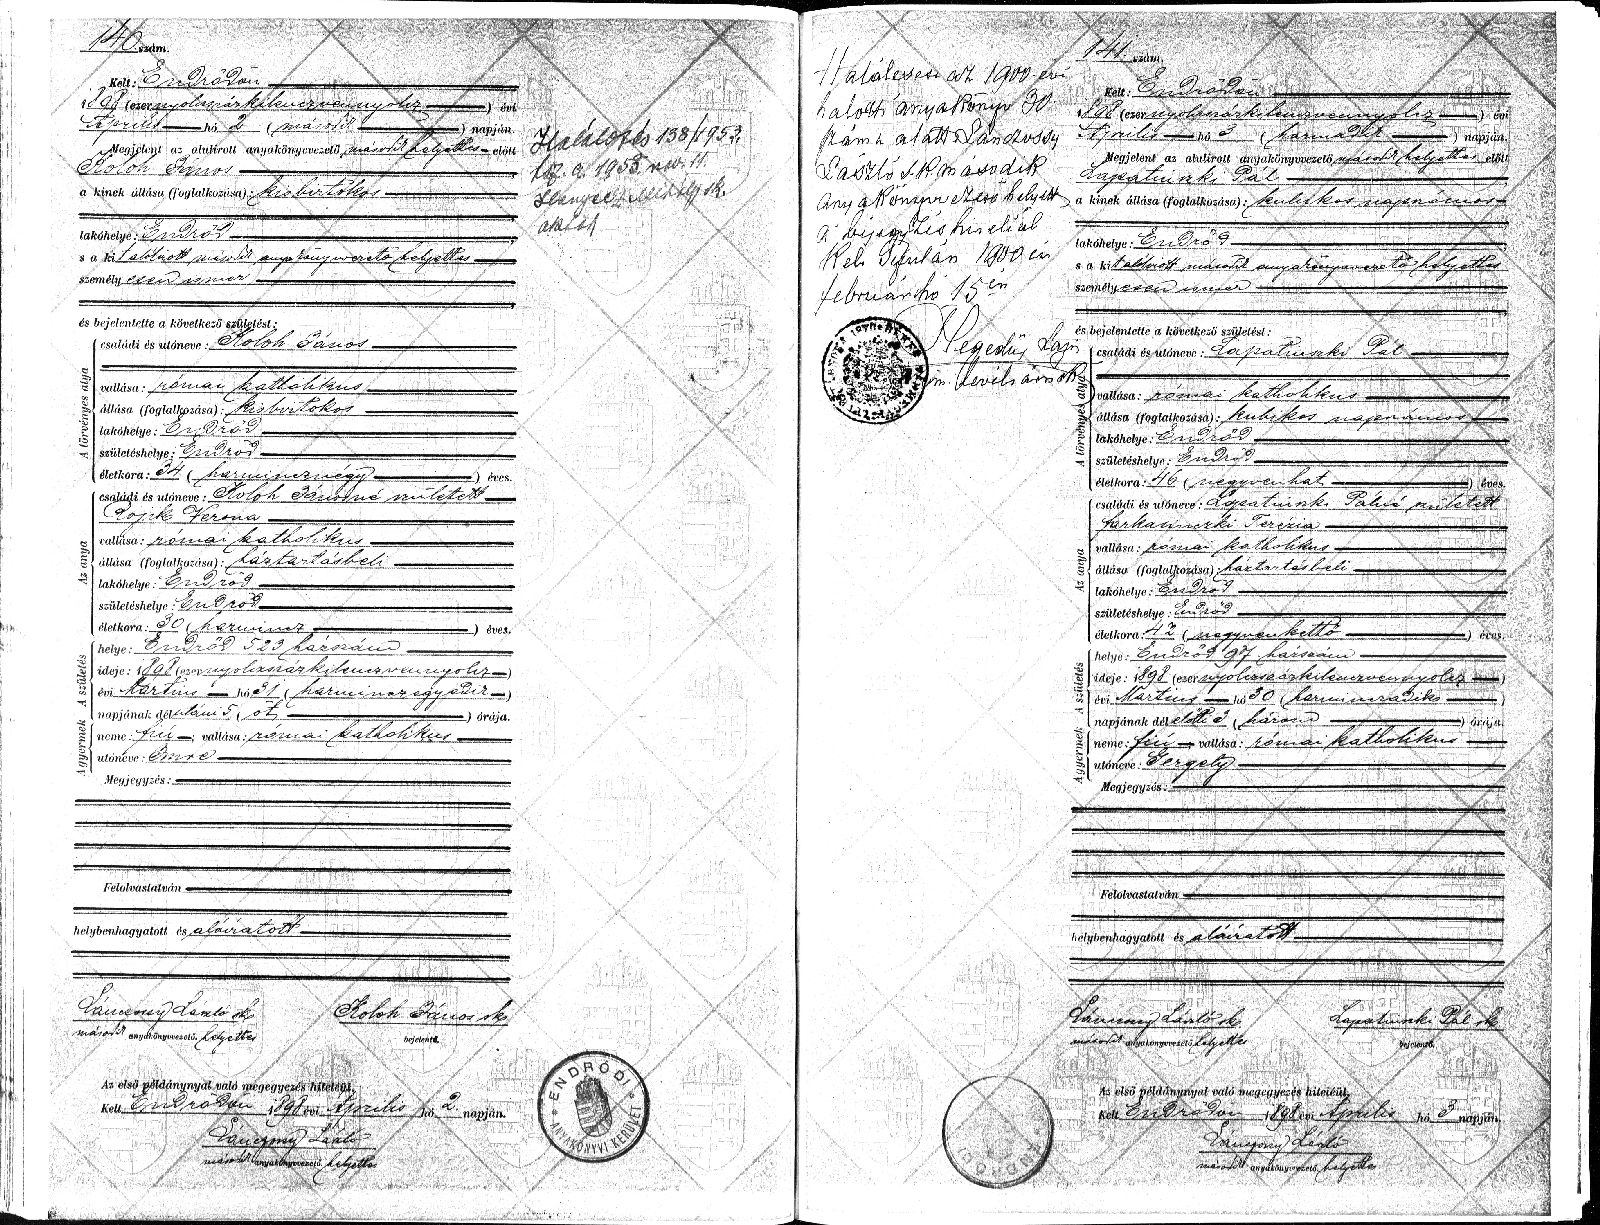 140 szám.
Kelt: Endrődön
1898 (ezernyolczszázkilenczvennyolcz) évi
Április hó 2 (második) napján.
Megjelent az alulirott anyakönyvvezető második helyettes előtt
Koloh János
a kinek állása (foglalkozása): kisbirtokos
lakóhelye: Endrőd
s a kit alólirott második anyakönyvvezető helyettes
személyesen ismer
és bejelentette a következő születést:
A törvényes atya
családi és utóneve: Koloh János
vallása: római katholikus
állása (foglalkozása): kisbirtokos
lakóhelye: Endrőd
születéshelye: Endrőd
életkora: 34 (harmincznégy) éves.
Az anya
családi és utóneve: Koloh Jánosné született
Rojik Verona
vallása: római katholikus
állása (foglalkozása): háztartásbeli
lakóhelye: Endrőd
születéshelye: Endrőd
életkora: 30 (harmincz) éves.
A születés
helye: Endrőd 523 házszám
ideje: 1898 (ezernyolczszázkilenczvennyolcz)
évi Martius hó 31 (harminczegyedik)
napjának délutáni 5 (öt) órája.
A gyermek
neme: fiú; vallása: római katholikus
utóneve: Imre
Megjegyzés:
Felolvastatván
helybenhagyatott és aláiratott
László sk
második anyakönyvvezető helyettes
Koloh János sk
bejelentő.
Az első példánynyal való megegyezés hiteléül,
Kelt Endrődön 1898 évi Április hó 2 napján.
László
második anyakönyvvezető helyettes
Halálozás 138/1953.
1953. nov. 11.
Mihály sk.
ENDRŐDI
ANYAKÖNYVI KERÜLET
Halálesete az 1900 évi
halotti anyakönyv 30
szám alatt
László sk második
anyakönyvvezető helyett
a bejegyzés hiteléül
Kelt Gyulán 1900 évi
február hó 15 én
Hegedüs
levéltárnok
141 szám.
Kelt: Endrődön
1898 (ezernyolczszázkilenczvennyolcz) évi
Április hó 3 (harmadik) napján.
Megjelent az alulirott anyakönyvvezető második helyettes előtt
Lapatinszki Pál
a kinek állása (foglalkozása): kubikos napszámos
lakóhelye: Endrőd
s a kit alólirott második anyakönyvvezető helyettes
személyesen ismer
és bejelentette a következő születést:
A törvényes atya
családi és utóneve: Lapatinszki Pál
vallása: római katholikus
állása (foglalkozása): kubikos napszámos
lakóhelye: Endrőd
születéshelye: Endrőd
életkora: 46 (negyvenhat) éves.
Az anya
családi és utóneve: Lapatinszki Pálné született
Farkasinszki Terézia
vallása: római katholikus
állása (foglalkozása): háztartásbeli
lakóhelye: Endrőd
születéshelye: Endrőd
életkora: 42 (negyvenkettő) éves.
A születés
helye: Endrőd 97 házszám
ideje: 1898 (ezernyolczszázkilenczvennyolcz)
évi Martius hó 30 (harminczadik)
napjának délelőtti 3 (három) órája.
A gyermek
neme: fiú vallása: római katholikus
utóneve: Gergely
Megjegyzés:
Felolvastatván
helybenhagyatott és aláiratott
László sk
második anyakönyvvezető helyettes
Lapatinszki Pál sk
bejelentő.
Az első példánynyal való megegyezés hiteléül,
Kelt Endrődön 1898 évi Április hó 3 napján.
László
második anyakönyvvezető helyettes
ENDRŐDI